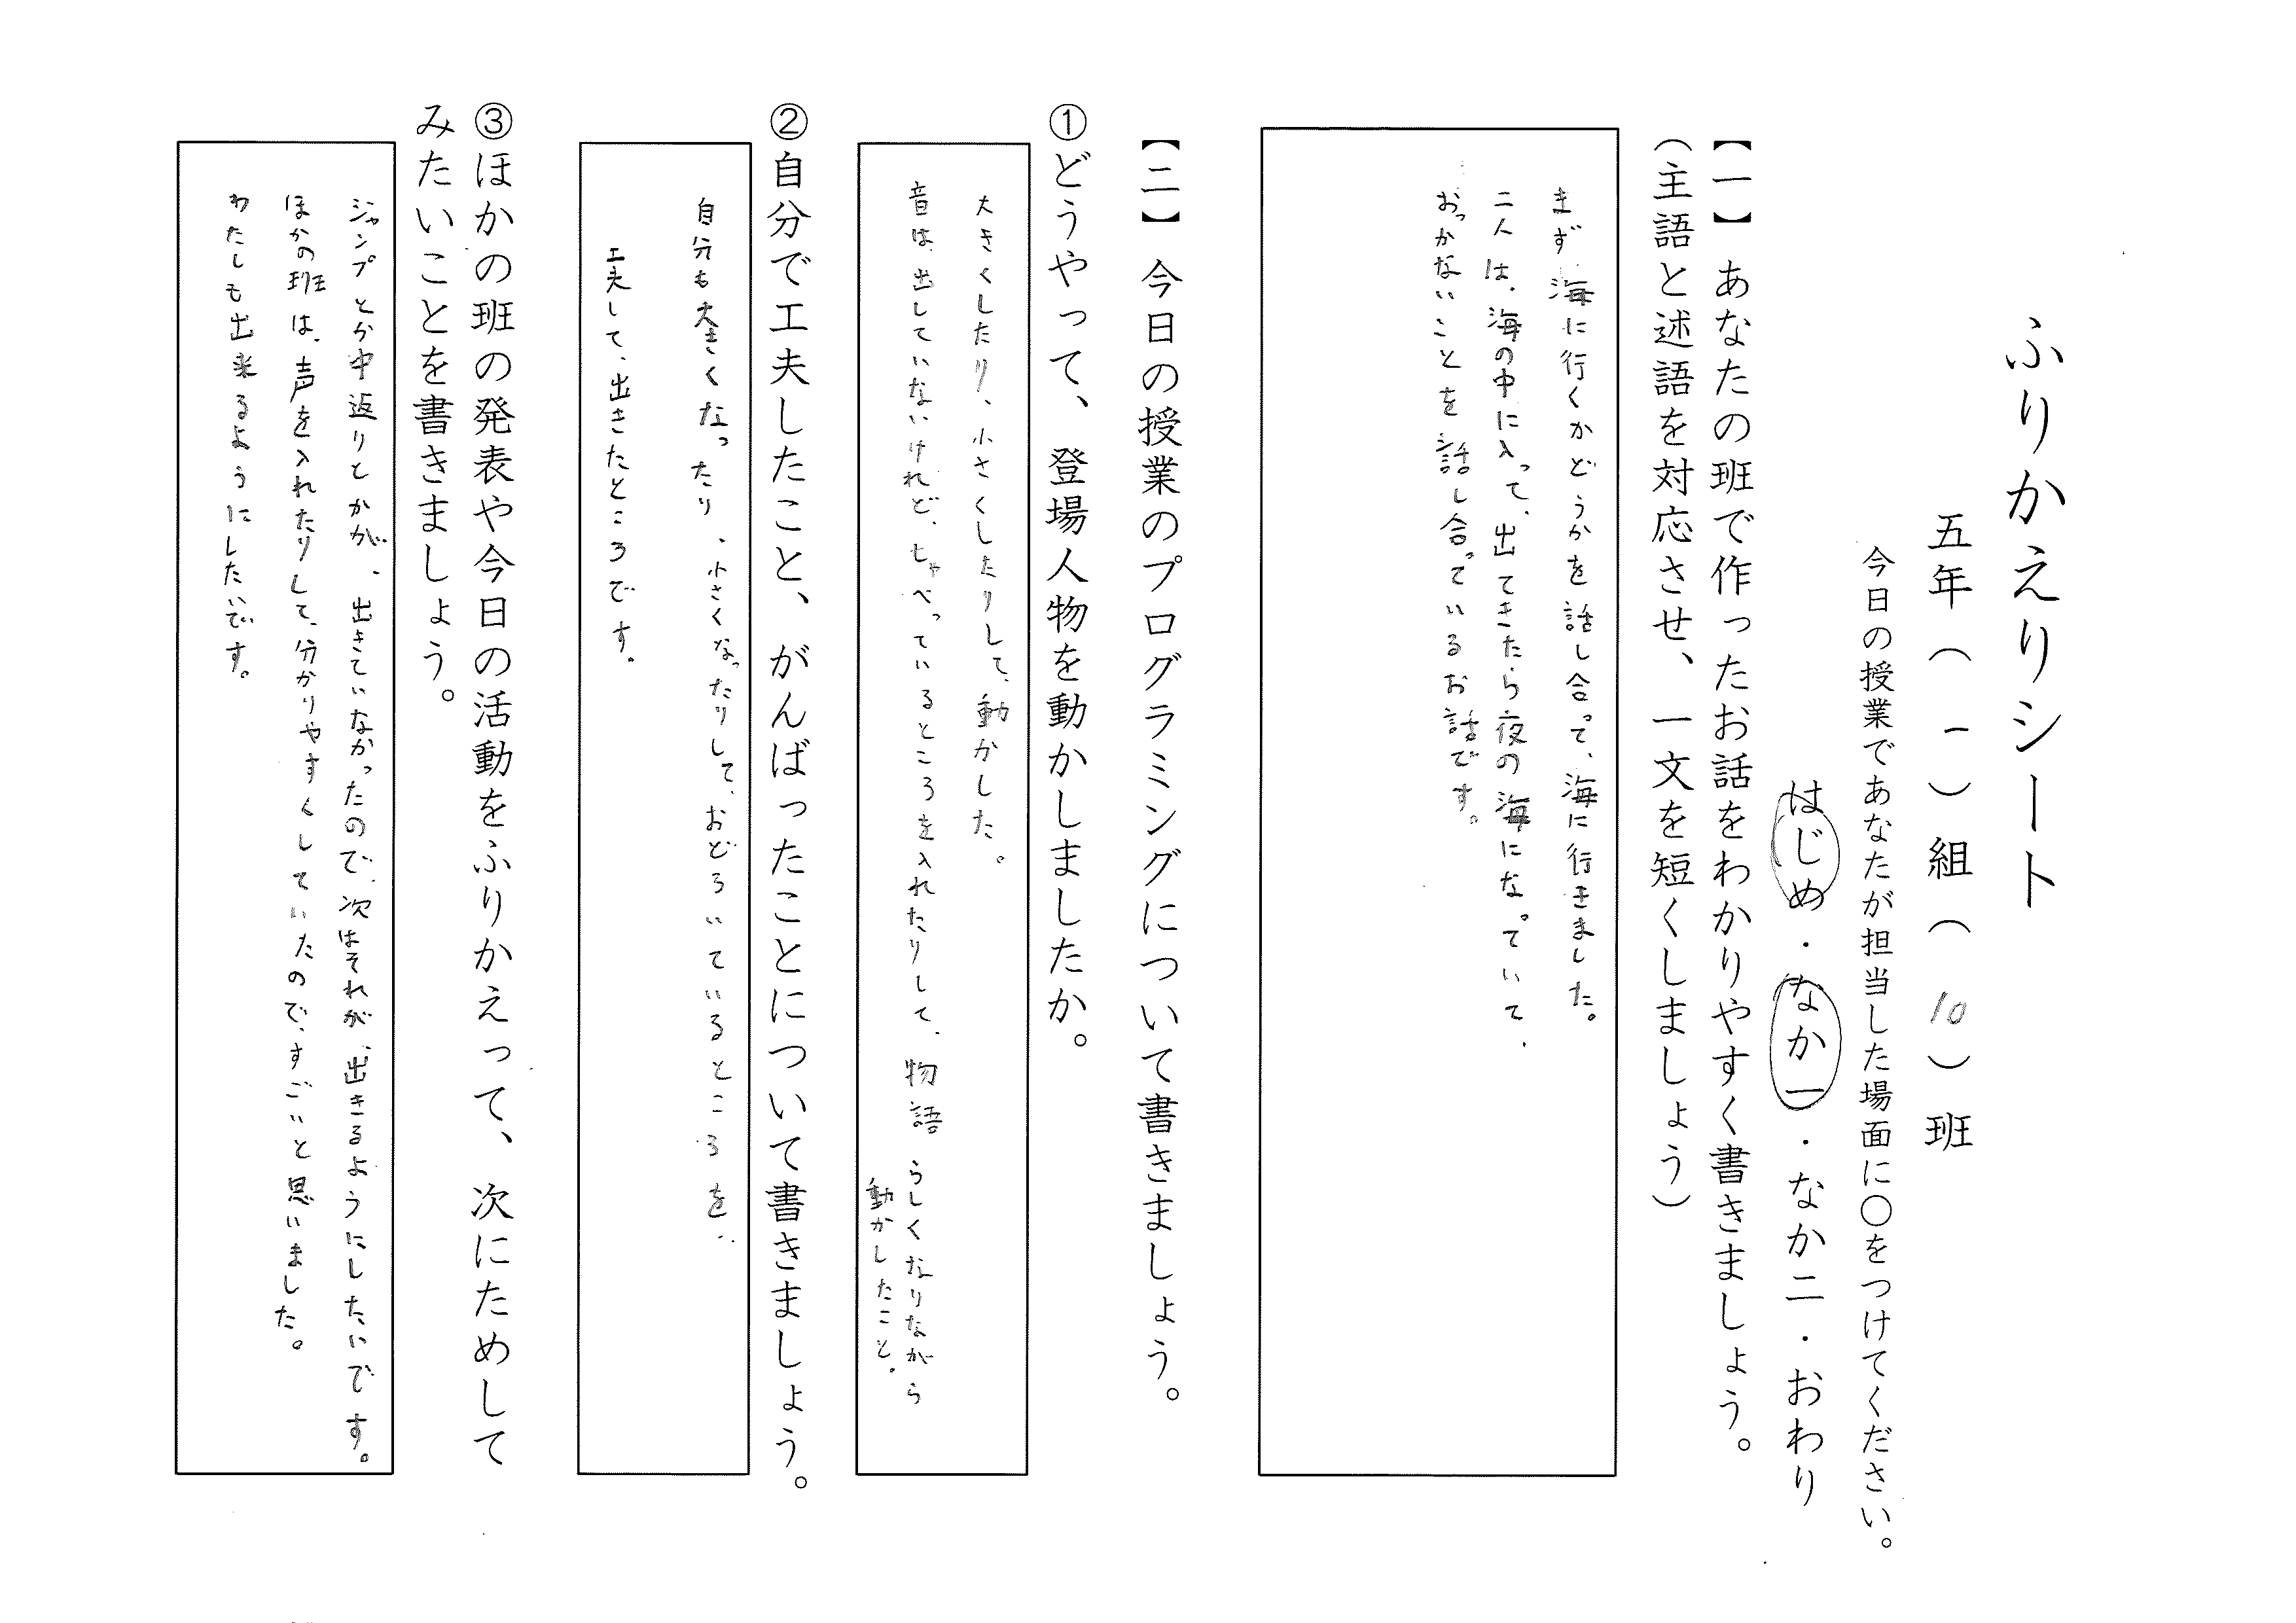 ふりかえりシート
五年（一）組（10）班
今日の授業であなたが担当した場面に〇をつけてください。
はじめ・なか一・なか二・おわり
【一】あなたの班で作ったお話をわかりやすく書きましょう。
（主語と述語を対応させ、一文を短くしましょう）
まず海に行くかどうかを話し合って、海に行きました。
二人は、海の中に入って、出てきたら夜の海になっていて、
おっかないことを話し合っているお話です。
【二】今日の授業のプログラミングについて書きましょう。
①どうやって、登場人物を動かしましたか。
大きくしたり、小さくしたりして、動かした。
音は、出していないけれど、しゃべっているところを入れたりして、物語らしくなりながら
動かしたこと。
②自分で工夫したこと、がんばったことについて書きましょう。
自分も大きくなったり、小さくなったりして、おどろいているところを、
工夫して、出きたところです。
③ほかの班の発表や今日の活動をふりかえって、次にためして
みたいことを書きましょう。
ジャンプとか中返りとかが、出きていなかったので、次はそれが、出きるようにしたいです。
ほかの班は、声を入れたりして、分かりやすくしていたので、すごいと思いました。
わたしも出来るようにしたいです。